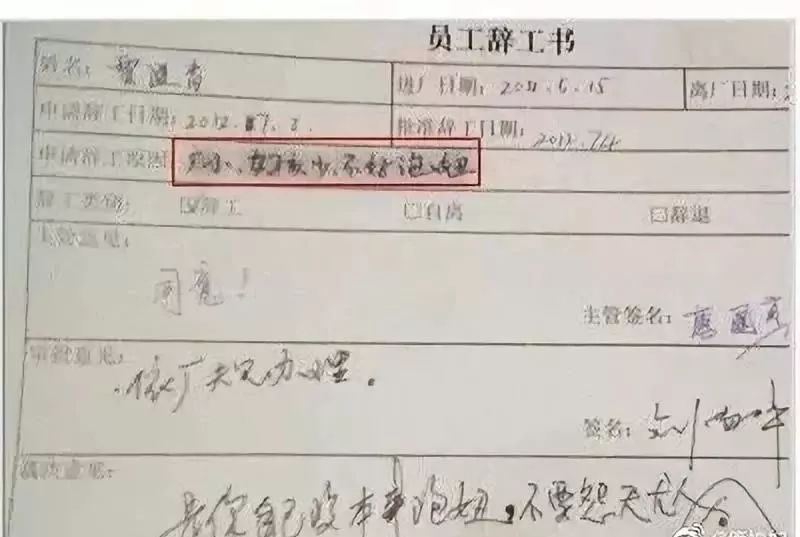 员工辞工书
姓名：
进厂日期：2011.6.15 离厂日期：
申请辞工日期：2012.7.3. 批准辞工日期：2012.7.4
申请辞工原因：厂小、女孩少、不好泡妞
辞工类别：☑辞工 □自离 □辞退
主管意见：
同意！
主管签名：
审批意见：
依厂规定办理。
签名：
意见：
是你自己没本事泡妞，不要怨天尤人